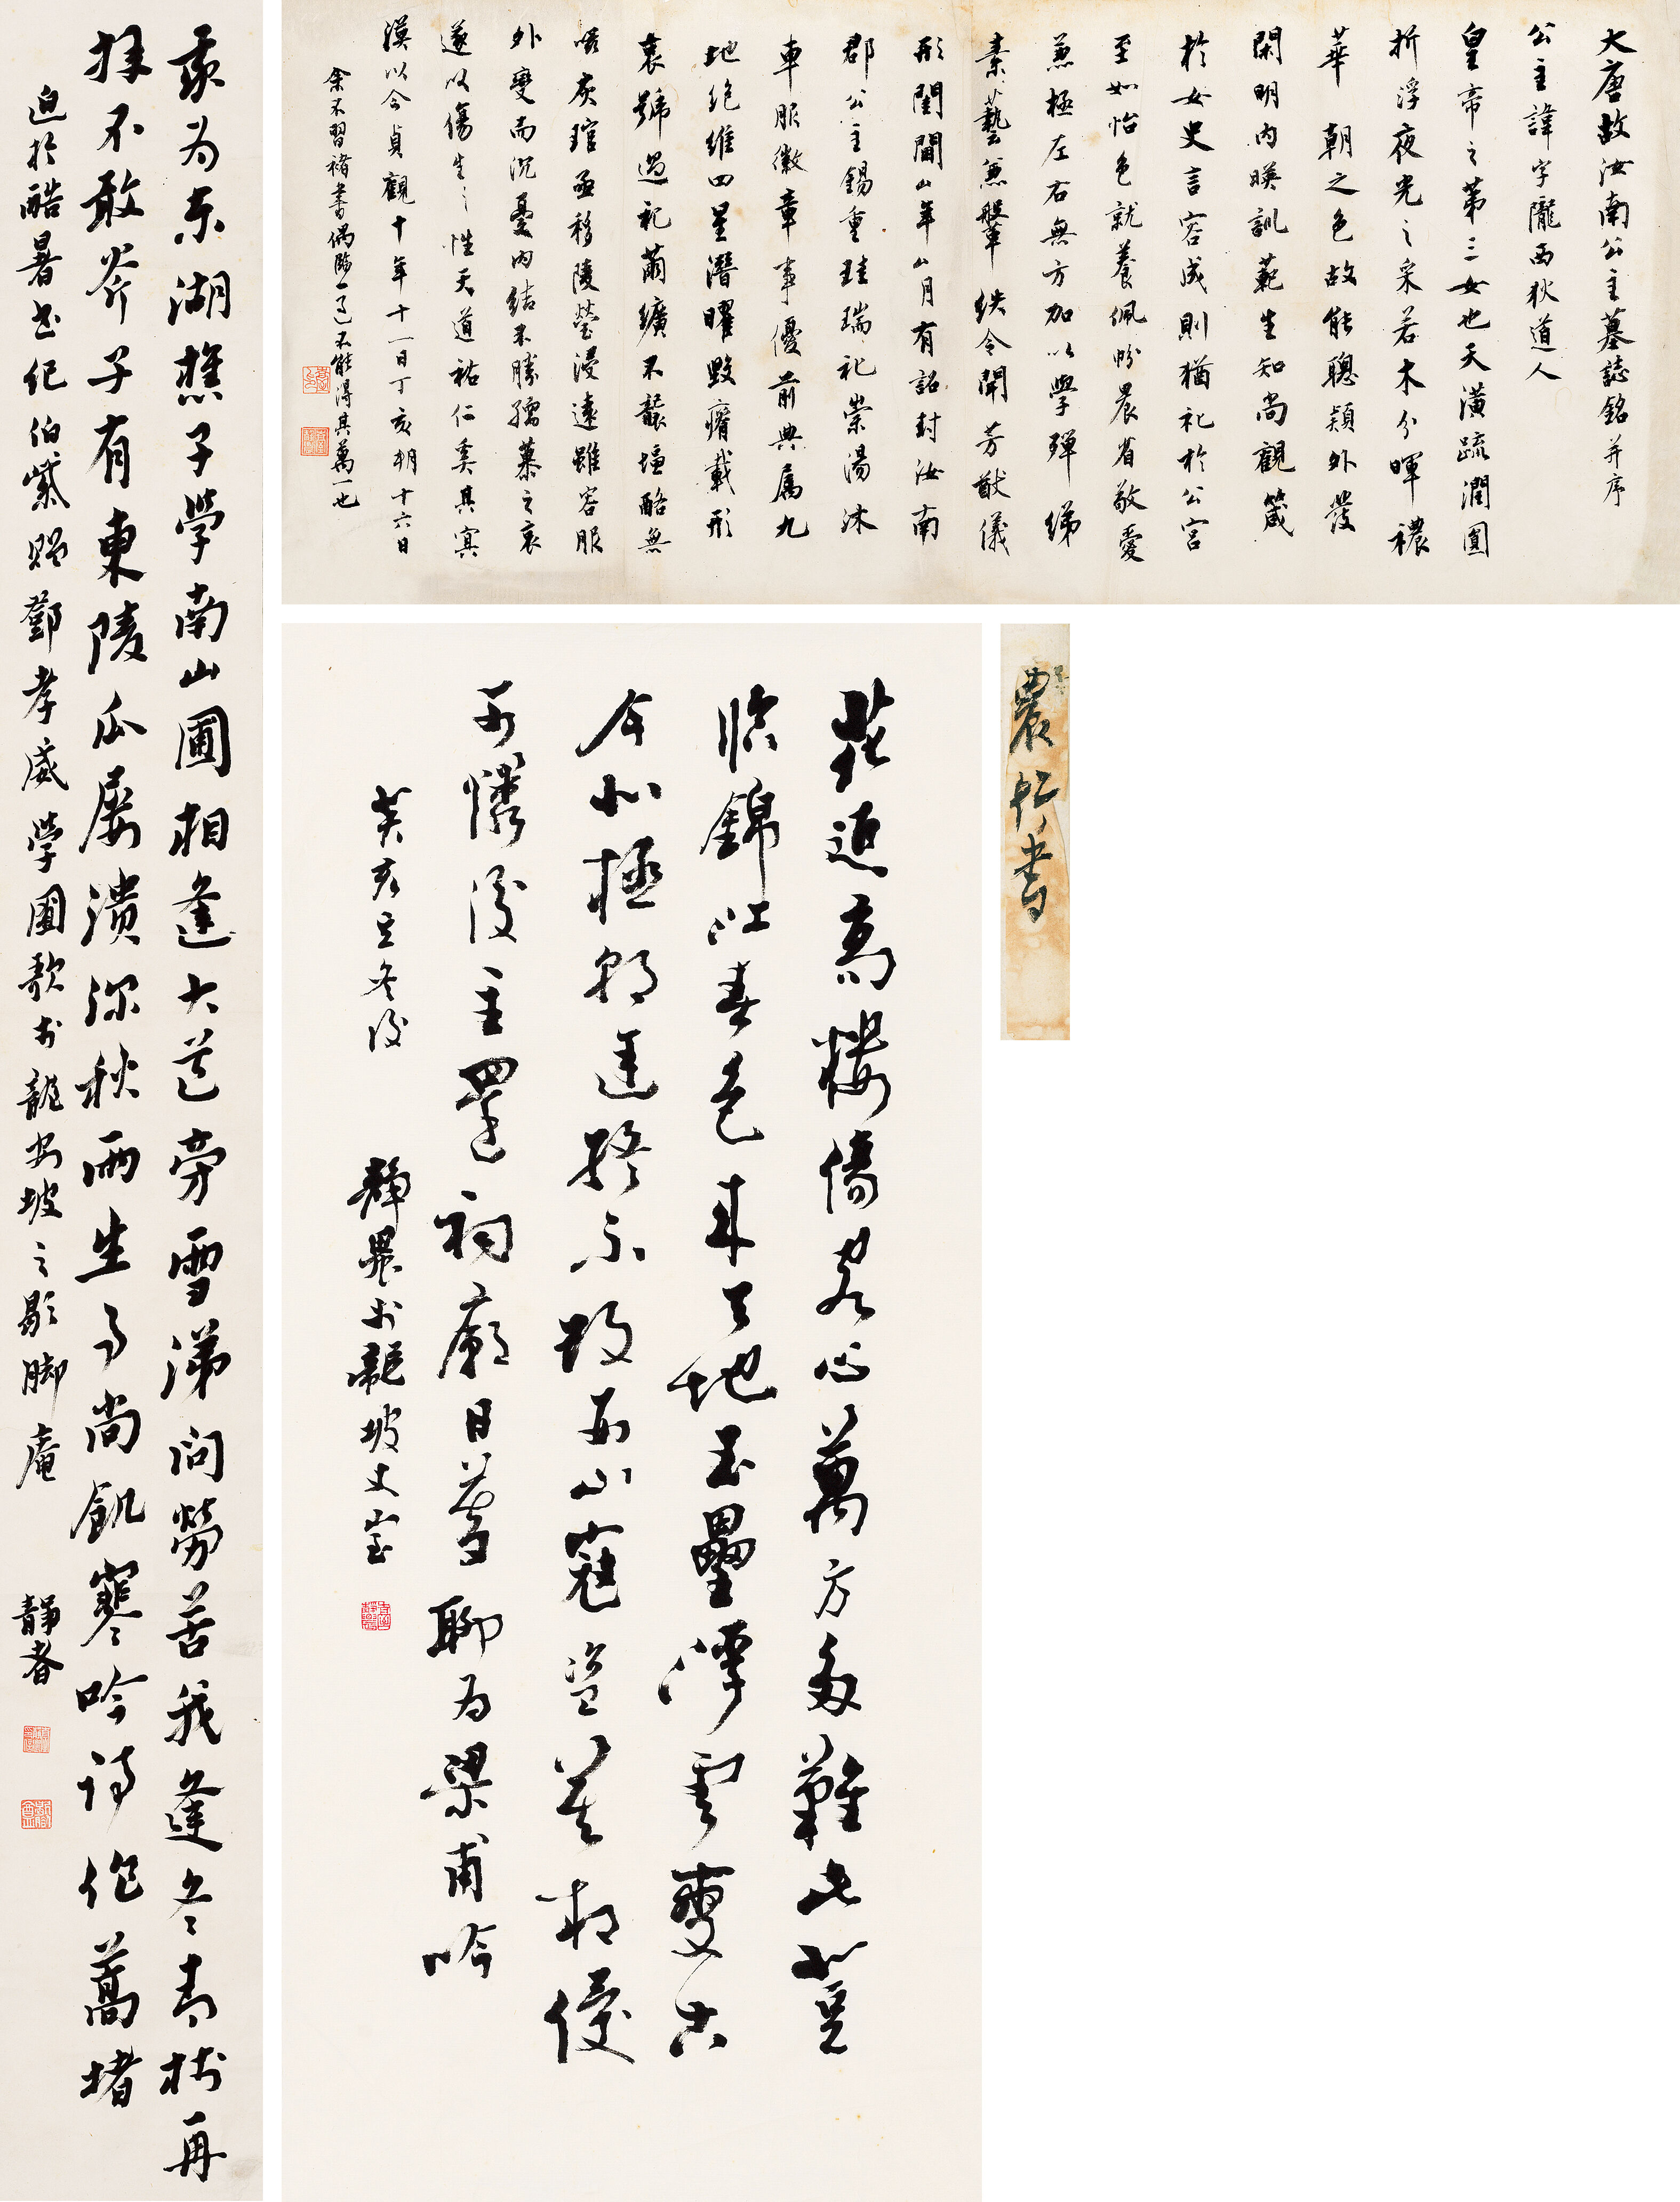 大唐故汝南公主墓誌銘并序
公主諱字隴西狄道人
皇帝之第三女也天潢疏潤圓
折浮夜光之采若木分暉穠
華朝之色故能聰穎外發
閑明內暎訓範生知尚觀箴
於女史言容成則猶祀於公宮
至如怡色就養佩帉晨省敬愛
兼極左右無方加以學殫綈
素藝兼鞶紩令聞芳猷儀
形閨閫厶年厶月有詔封汝南
郡公主錫重珪瑞祀崇湯沐
車服徽章事優前典屬九
地絕維四星潛曜毀瘠載形
哀號過祀繭纊不襲塩酪無
嗞灰琯亟移陵塋浸遠雖容服
外變而沉憂內結不勝孺慕之哀
遂以傷生之性天道祐仁奚其冥
漠以今貞觀十年十一月丁亥朔十六日
余不習褚書偶臨一過不能得其萬一也
羨為東湖樵子學南山圃相逢大道旁雪涕問勞苦我逢冬青樹再
拜不敢斧子有東陵瓜屢潰深秋雨生事尚飢寒吟詩作蒿堵
迫於酷暑書紀伯紫贈鄧孝威學圃歌於龍安坡之歇腳庵 靜者
花近高樓傷客心萬方多難此登
臨錦江春色來天地玉壘浮雲變古
今北極朝廷終不改西山寇盜莫相侵
可憐後主還祠廟日暮聊為梁甫吟
癸亥立冬後 靜農於龍坡丈室
農行書